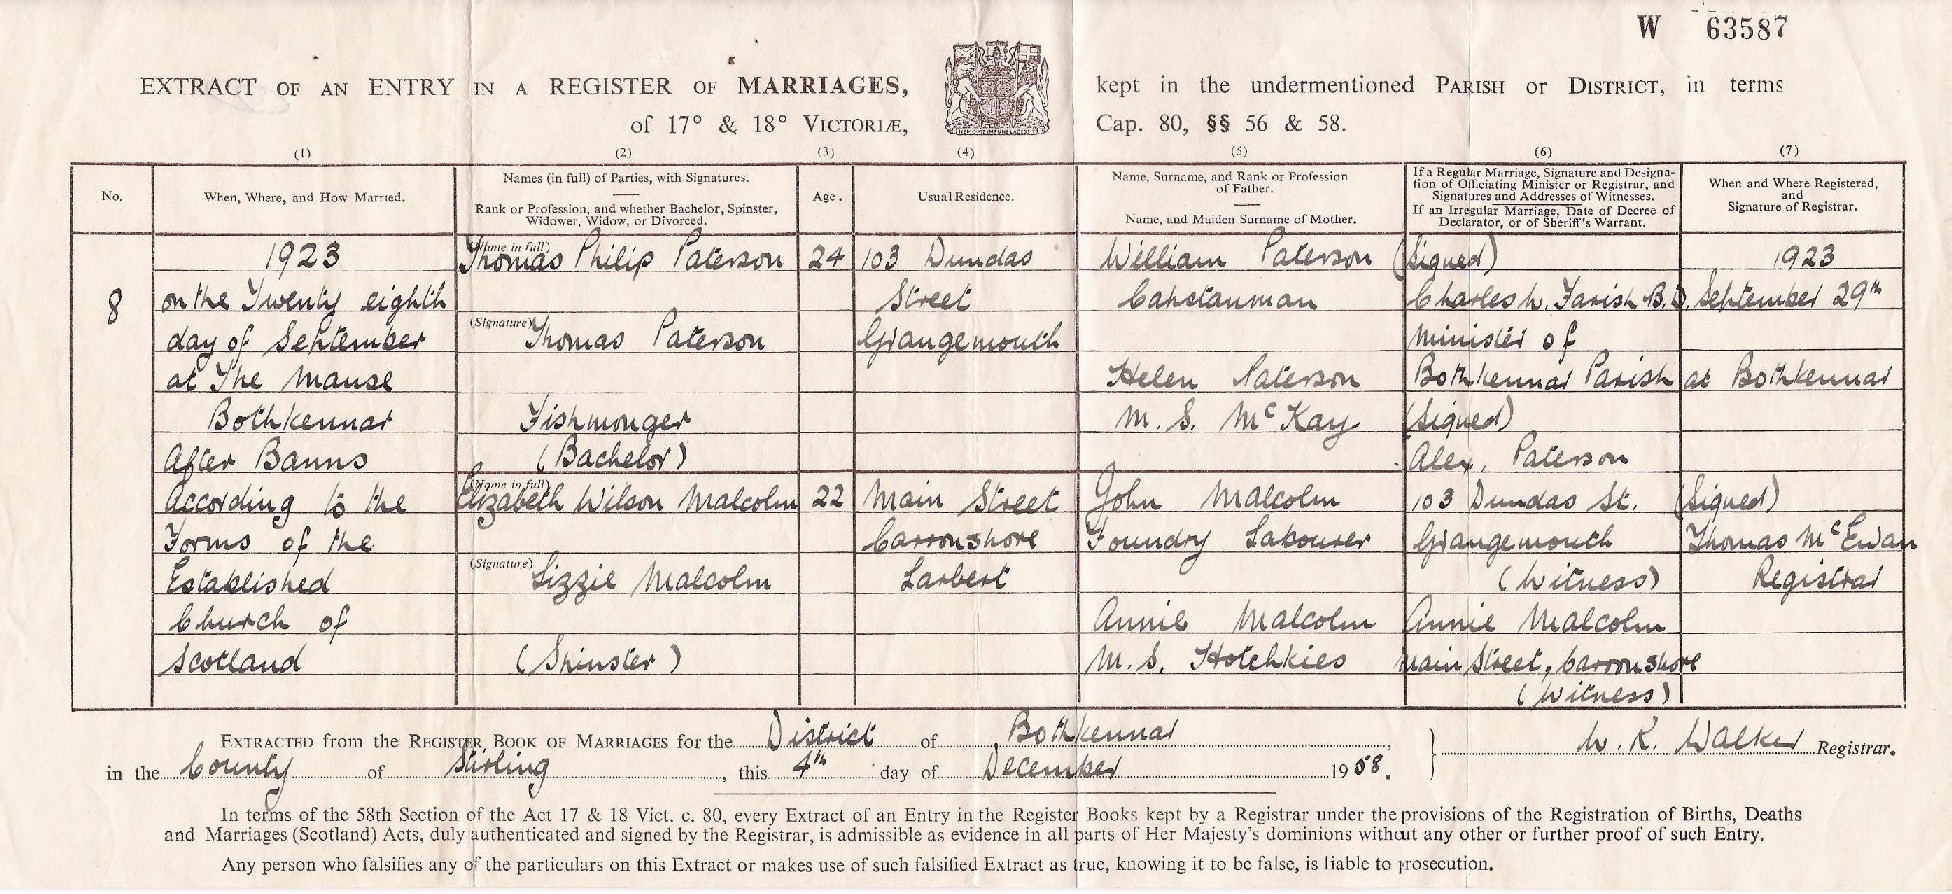 W 63587
EXTRACT OF AN ENTRY IN A REGISTER OF MARRIAGES, kept in the undermentioned PARISH or DISTRICT, in terms
of 17° & 18° VICTORIÆ, Cap. 80, §§ 56 & 58.
(1) (2) (3) (4) (5) (6) (7)
No.
When, Where, and How Married.
Names (in full) of Parties, with Signatures.
Rank or Profession, and whether Bachelor, Spinster,
Widower, Widow, or Divorced.
Age.
Usual Residence.
Name, Surname, and Rank or Profession
of Father.
Name, and Maiden Surname of Mother.
If a Regular Marriage, Signature and Designa-
tion of Officiating Minister or Registrar, and
Signatures and Addresses of Witnesses.
If an Irregular Marriage, Date of Decree of
Declarator, or of Sheriff's Warrant.
When and Where Registered,
and
Signature of Registrar.
8
1923
on the Twenty eighth
day of September
at The Manse
Bothkennar
After Banns
According to the
Forms of the
Established
Church of
Scotland
(Name in full)
Thomas Philip Paterson
(Signature) Thomas Paterson
Fishmonger
(Bachelor)
(Name in full)
Elizabeth Wilson Malcolm
(Signature) Lizzie Malcolm
(Spinster)
24
22
103 Dundas
Street
Grangemouth
Main Street
Carronshore
Larbert
William Paterson
Capstanman
Helen Paterson
M. S. McKay
John Malcolm
Foundry Labourer
Annie Malcolm
M. S. Hotchkies
(Signed)
Charles W. Farish B.D.
Minister of
Bothkennar Parish
(Signed)
Alex. Paterson
103 Dundas St.
Grangemouth
(Witness)
Annie Malcolm
Main Street, Carronshore
(Witness)
1923
September 29th
at Bothkennar
(Signed)
Thomas McEwan
Registrar
EXTRACTED from the REGISTER BOOK OF MARRIAGES for the District of Bothkennar
in the County of Stirling, this 4th day of December 1958.
W. R. Walker Registrar.
In terms of the 58th Section of the Act 17 & 18 Vict. c. 80, every Extract of an Entry in the Register Books kept by a Registrar under the provisions of the Registration of Births, Deaths
and Marriages (Scotland) Acts, duly authenticated and signed by the Registrar, is admissible as evidence in all parts of Her Majesty's dominions without any other or further proof of such Entry.
Any person who falsifies any of the particulars on this Extract or makes use of such falsified Extract as true, knowing it to be false, is liable to prosecution.